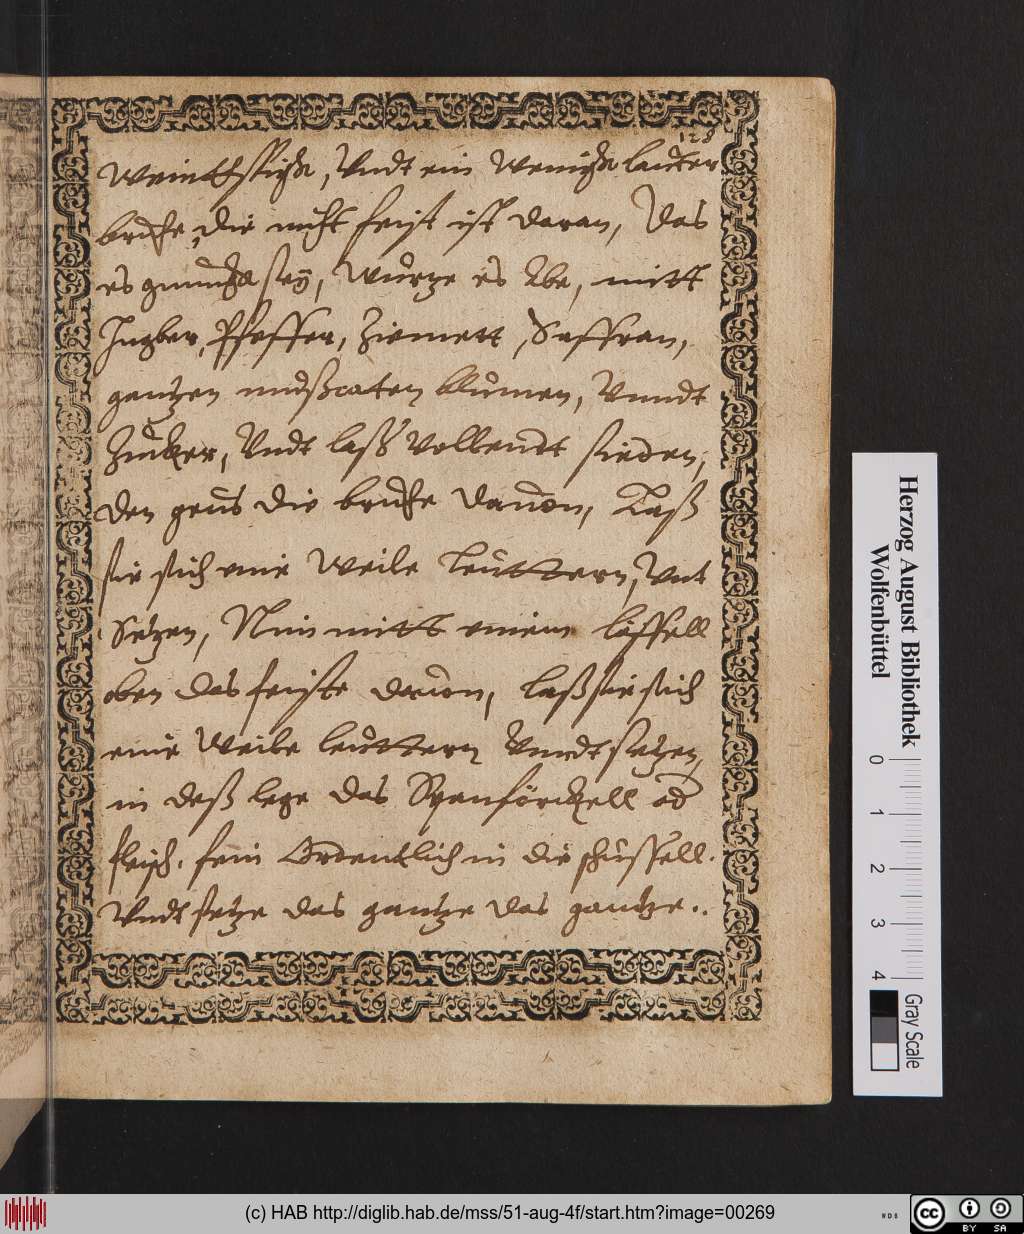 128
Weinessigk, Vndt ein Wenigk lautter
bruhe, die nicht feist ist daran, Das
es gnungk sey, Wurtze es Abe, mitt
Ingber, Pfeffer, Zimett, Saffran,
gantzen mußcaten blumen, Vnndt
Zucker, Vndt laß Vollendt sieden,
den geus die bruhe dauon, Laß
sie sich eine Weile Leuttern, Vnt
Setzen, Nim mitt einem löffell
oben das feiste dauon, laß sie sich
eine Weile leuttern Vnndt setzen,
in deß lege das Spanförckell od
fleisch, fein Ordentlich in die schussell.
Vndt setze das gantze das gantze..
Herzog August Bibliothek
Wolfenbüttel
0 1 2 3 4
Gray Scale
(c) HAB http://diglib.hab.de/mss/51-aug-4f/start.htm?image=00269
WDB
cc BY SA